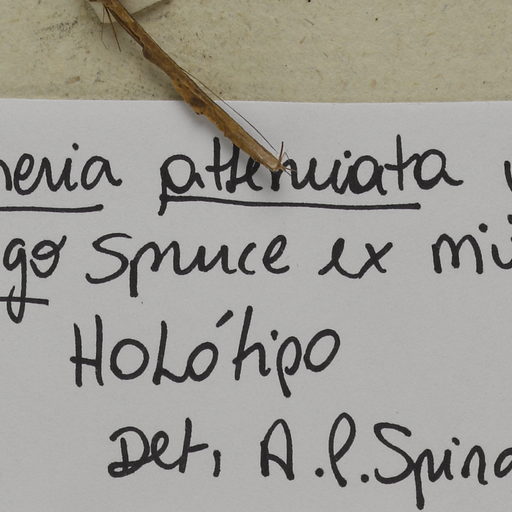 neria attenuata v
go Spruce ex mü
Holótipo
Det, A.P. Spina